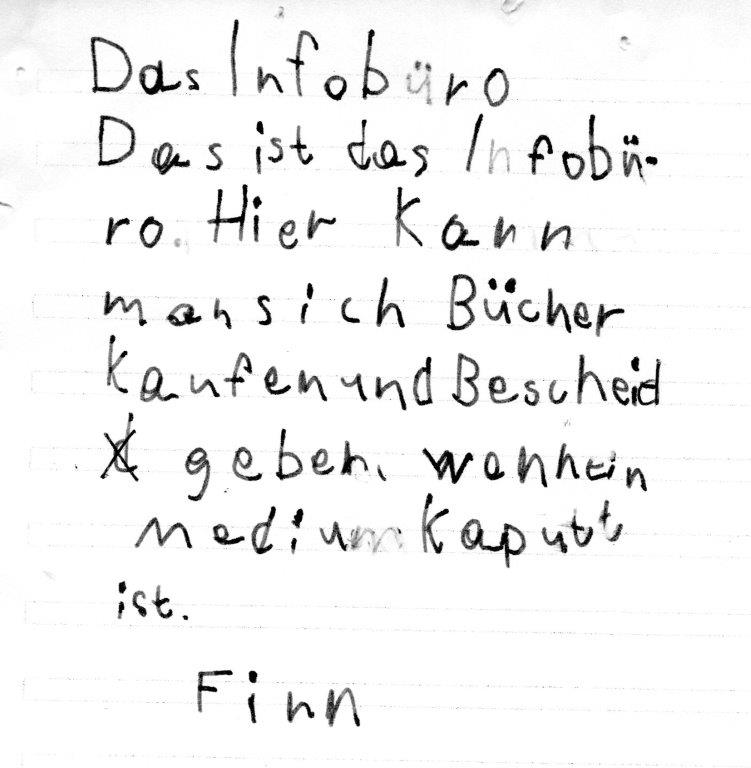 Das Infobüro
Das ist das Infobü-
ro. Hier kann
man sich Bücher
kaufen und Bescheid
geben, wenn ein
Medium kaputt
ist.
Finn